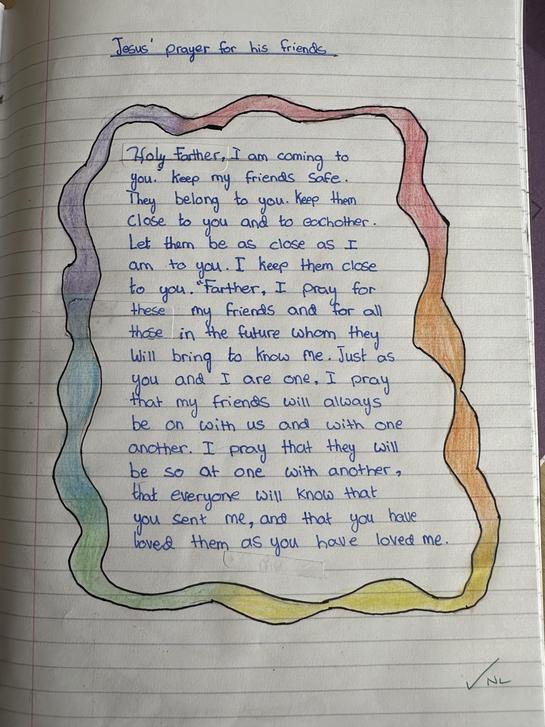 Jesus' prayer for his friends
Holy Farther, I am coming to
you. Keep my friends safe.
They belong to you. Keep them
close to you and to eachother.
Let them be as close as I
am to you. I keep them close
to you. "Farther, I pray for
these my friends and for all
those in the future whom they
will bring to know me. Just as
you and I are one, I pray
that my friends will always
be on with us and with one
another. I pray that they will
be so at one with another,
that everyone will know that
you sent me, and that you have
loved them as you have loved me.
✓ NL